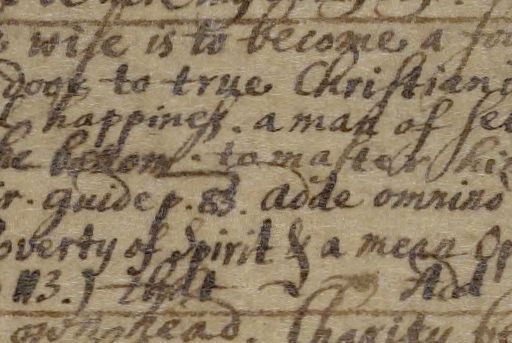 wise is to become a
door to true Christiani
happiness. a man of sel
he becom. to master hi
guide p. 83. adde omnino
overty of Spirit & a mean Op
113.) that Ad
head. Charity